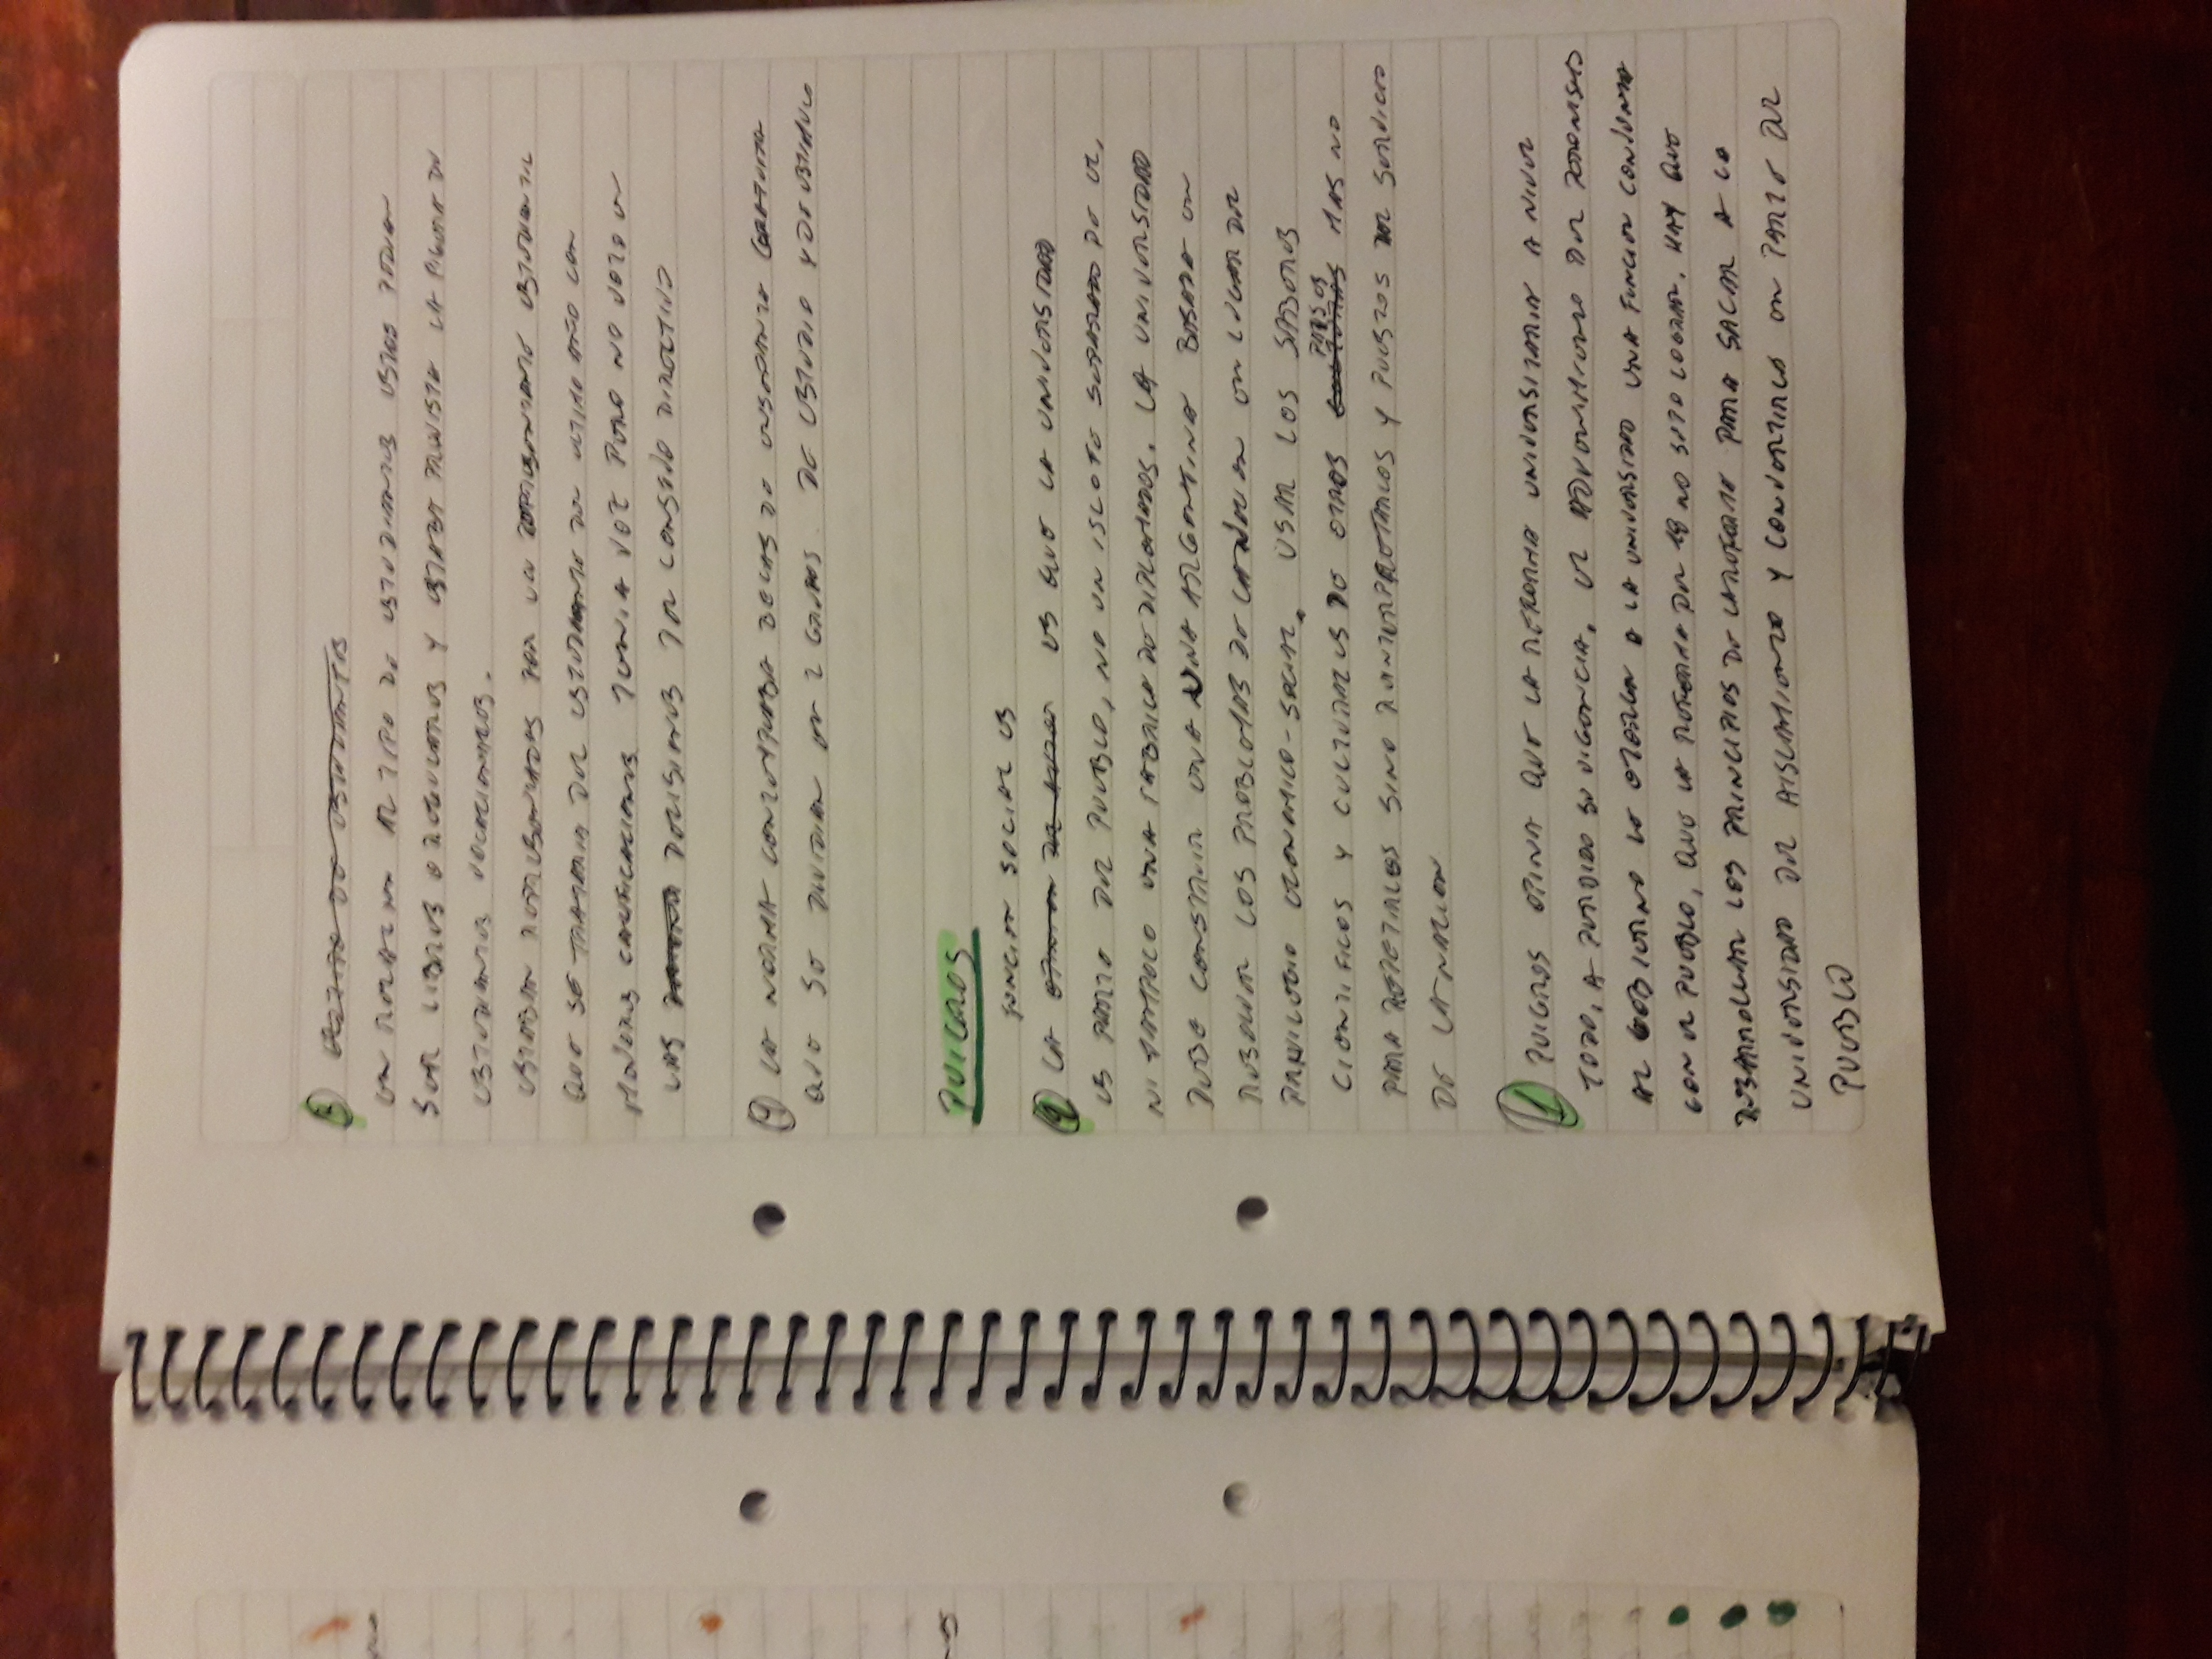 8 El tipo de estudiantes
EN RELACION AL TIPO DE ESTUDIANTES ESTOS PODIAN
SER LIBRES O REGULARES Y ESTABA PREVISTA LA FIGURA DE
ESTUDIANTES VOCACIONALES.
ESTABAN REPRESENTADOS POR UN REPRESENTANTE ESTUDIANTIL
QUE SE TRATARIA DEL ESTUDIANTE DEL ULTIMO AÑO CON
MEJORES CALIFICACIONES TENIA VOZ PERO NO VOTO EN
LAS DECISIONES DEL CONSEJO DIRECTIVO
9 LA NORMA CONTEMPLABA BECAS DE ENSEÑANZA GRATUITA
QUE SE DIVIDIAN EN 2 GRUPOS. DE ESTUDIO Y DE ESTIMULO
PUIGROS
FUNCION SOCIAL ES
2 LA OPINION DEL AUTOR ES QUE LA UNIVERSIDAD
ES PARTE DEL PUEBLO, NO UN ISLOTE SEPARADO DE EL,
NI TAMPOCO UNA FABRICA DE DIPLOMADOS. LA UNIVERSIDAD
DEBE CONSTRUIR UNA UNA ARGENTINA BASADA EN
RESOLVER LOS PROBLEMAS DE LA NACION EN LUGAR DEL
PRIVILEGIO ECONOMICO-SOCIAL. USAR LOS SABERES
PAISES
CIENTIFICOS Y CULTURALES DE OTROS CULTURAS MAS NO
PARA REPETIRLOS SINO REINTERPRETARLOS Y PUESTOS AL SERVICIO
DE LA NACION
1 PUIGROS OPINA QUE LA REFORMA UNIVERSITARIA A NIVEL
TODO, A PERDIDO SU VIGENCIA. EL ADVENIMIENTO DEL PERONISMO
AL GOBIERNO LE OTORGA A LA UNIVERSIDAD UNA FUNCION CONJUNTA
CON EL PUEBLO, QUE LA REFORMA DEL 18 NO SUPO LOGRAR. HAY QUE
DESARROLLAR LOS PRINCIPIOS DE LA REFORMA PARA SACAR A LA
UNIVERSIDAD DEL AISLAMIENTO Y CONVERTIRLA EN PARTE DEL
PUEBLO